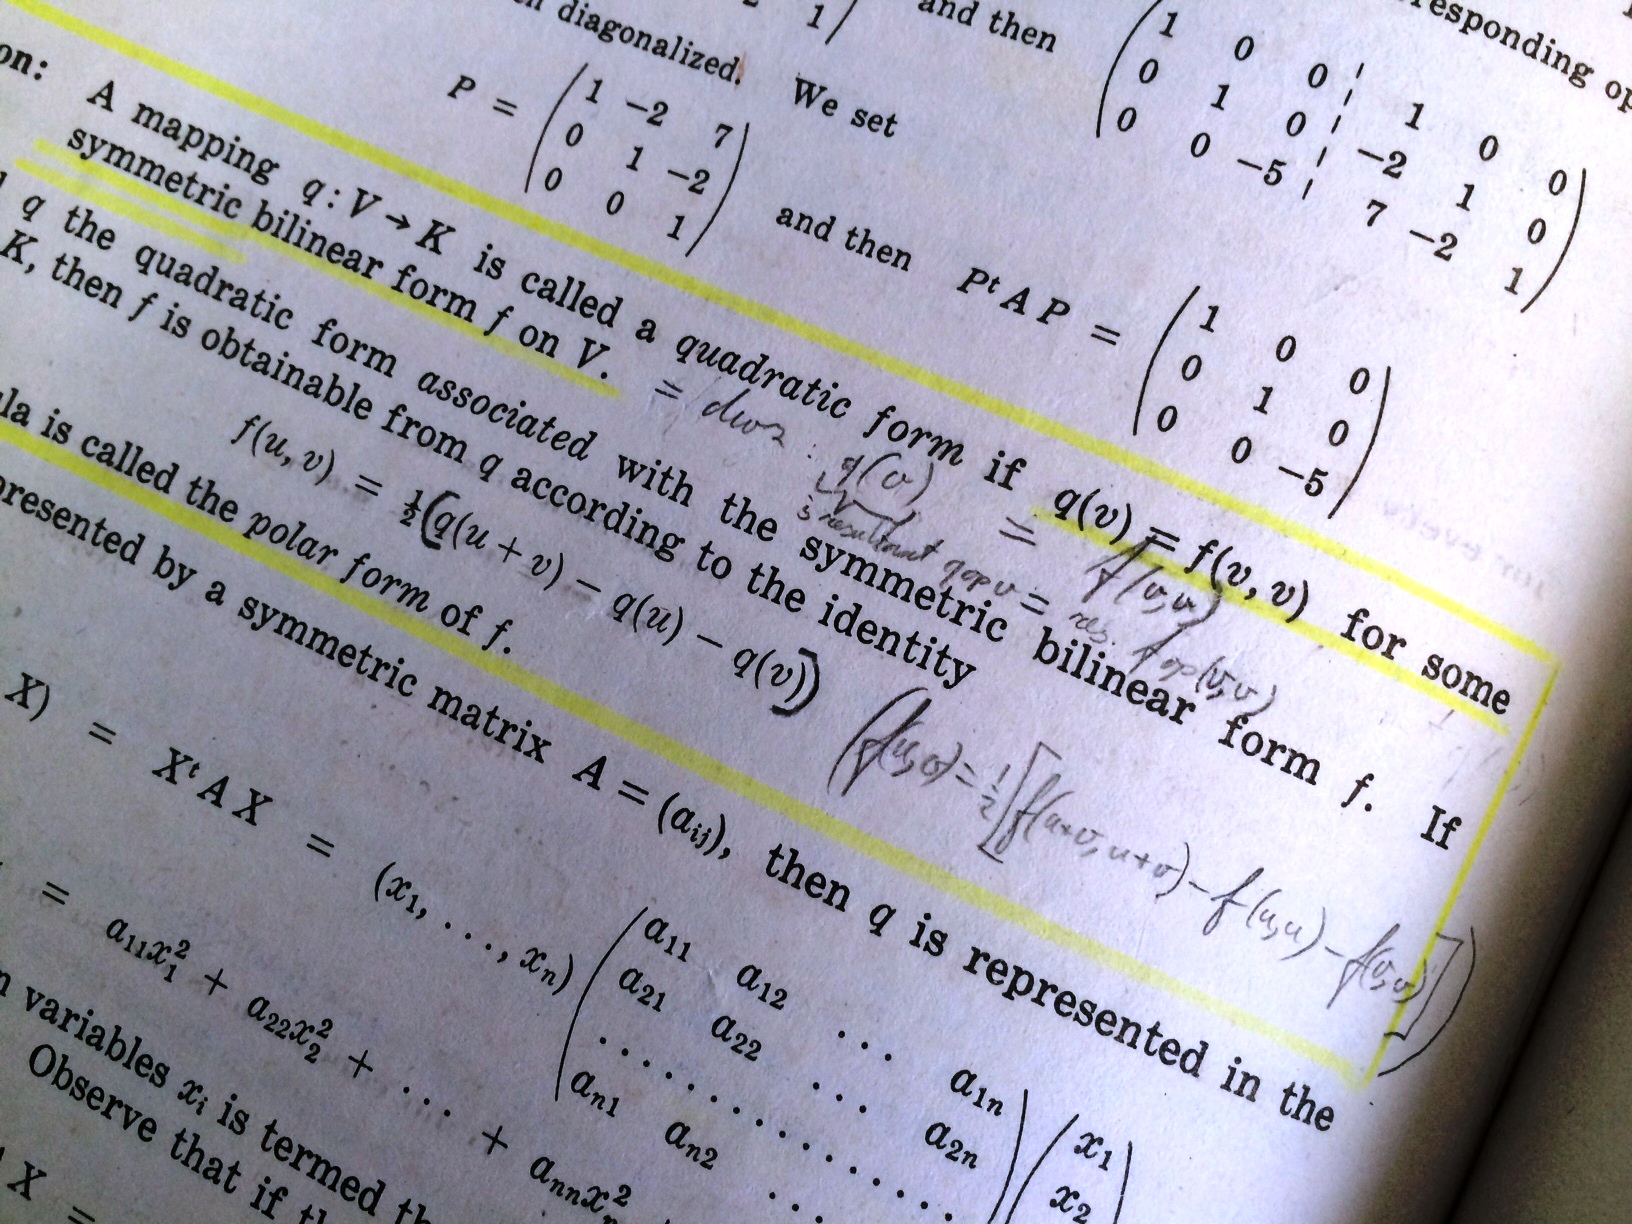 1
and then
responding op
( 1 0 0 ¦ 1 0 0
0 1 0 ¦ −2 1 0
0 0 −5 ¦ 7 −2 1 )
diagonalized. We set
P = ( 1 −2 7
0 1 −2
0 0 1 )
and then PᵗAP = ( 1 0 0
0 1 0
0 0 −5 )
on: A mapping q : V → K is called a quadratic form if q(v) = f(v, v) for some
symmetric bilinear form f on V.
= dwz
q(v) = f(v,v)
q op v = res. f op (v,v)
q the quadratic form associated with the symmetric bilinear form f. If
K, then f is obtainable from q according to the identity
f(u, v) = ½(q(u + v) − q(u) − q(v))
(f(u,v) = ½[f(u+v, u+v) − f(u,u) − f(v,v)])
la is called the polar form of f.
presented by a symmetric matrix A = (aᵢⱼ), then q is represented in the
X) = XᵗAX = (x₁, . . ., xₙ) ( a₁₁ a₁₂ . . . a₁ₙ
a₂₁ a₂₂ . . . a₂ₙ
. . . . . . . . . . . .
aₙ₁ aₙ₂ . . . ) ( x₁
x₂
= a₁₁x₁² + a₂₂x₂² + . . . + aₙₙxₙ²
n variables xᵢ is termed th
Observe that if th
X =